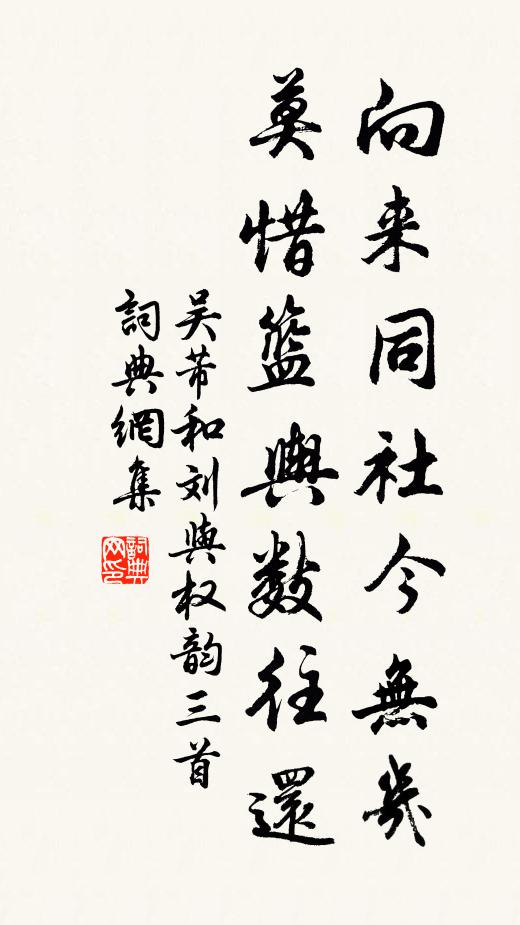 向来同社今無幾
莫惜籃輿数往還
吴芾和刘與权韵三首
詞典網集
詞典网印